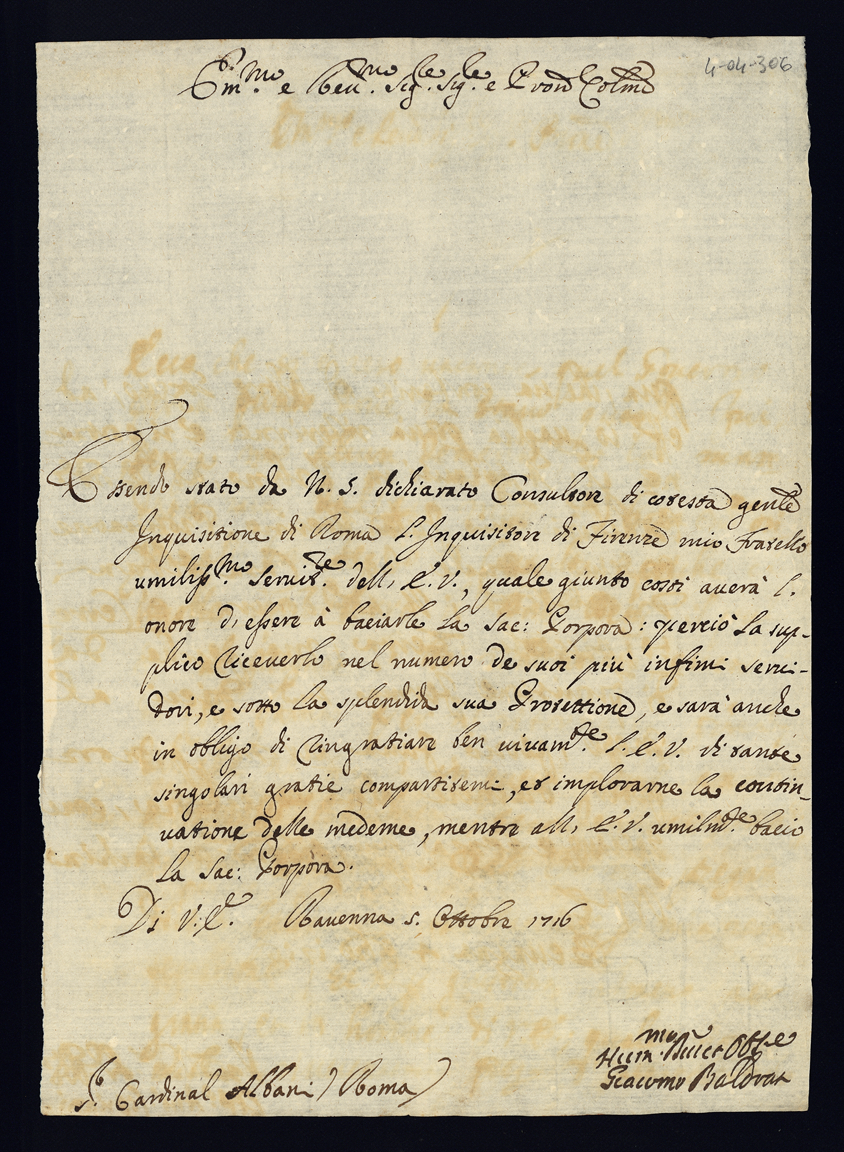 4-04-306
Em.mo e Reu.mo Sig.re Sig.re e Pron Colmo
Essendo stato da N. S. dichiarato Consultore di cotesta gen.le
Inquisitione di Roma l'Inquisitore di Firenze mio Fratello
umiliss.mo Servit.re dell'E.V., quale giunto costì auerà l'
onore d'essere à baciarle la Sac: Porpora: perciò la sup-
plico riceuerlo nel numero de suoi più infimi serui-
dori, e sotto la splendida sua Protettione, e sarà anche
in obligo di ringratiare ben viuam.te l'E.V. di tante
singolari gratie compartitemi, et implorarne la contin-
uatione delle medeme, mentre all'E.V. umilm.te bacio
la Sac: Porpora.
Di V.E. Rauenna 5. Ottobre 1716
Hum.mo Obl.
Giacomo
S.r Cardinal Albani / Roma /